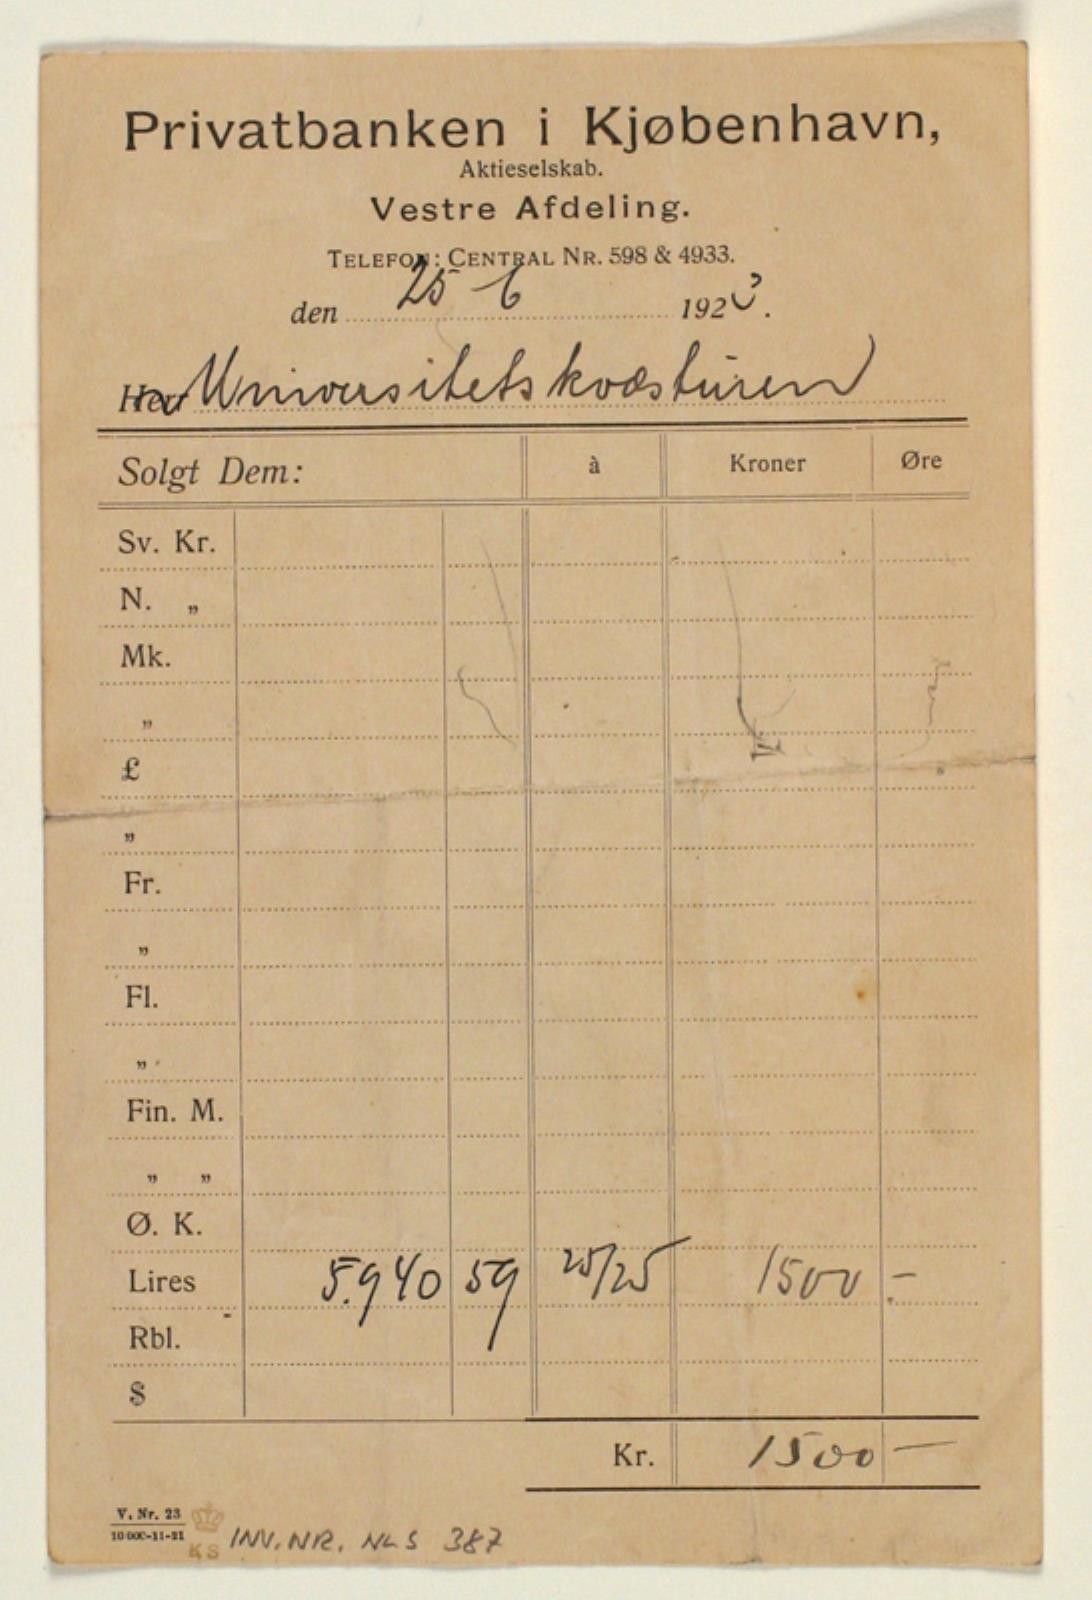 Privatbanken i Kjøbenhavn,
Aktieselskab.
Vestre Afdeling.
TELEFON: CENTRAL NR. 598 & 4933.
den 25 6 1923.
Herr Universitetskvæsturen
Solgt Dem: à Kroner Øre
Sv. Kr.
N. „
Mk.
„
£
„
Fr.
„
Fl.
„
Fin. M.
„ „
Ø. K.
Lires 5.940 59 25/25 1500 -
Rbl.
$
Kr. 1500 -
V. Nr. 23
10 000-11-21
KS
INV. NR. NLS 387